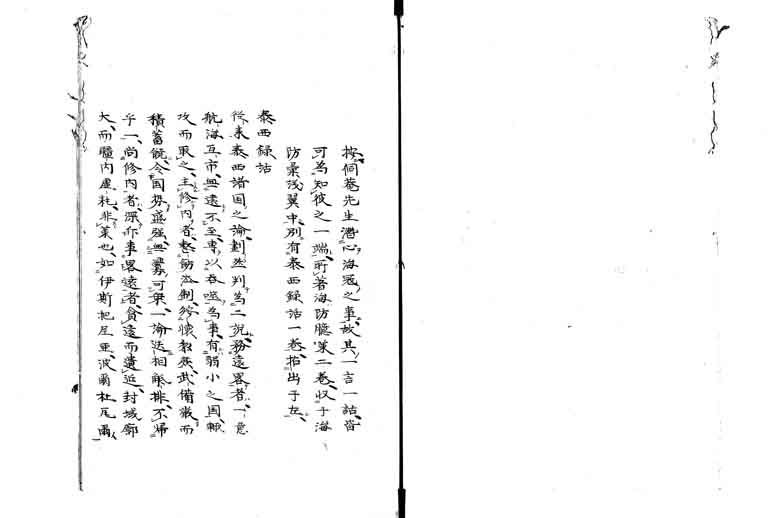 按侗菴先生潛心海冦之事、故其一言一話、皆
可為知彼之一端、所著海防臆策二卷、収于海
防彙議翼中、別有泰西録話一卷、抬出于左、
泰西録話
從来泰西諸国之論、劃然判為二説、務遠畧者、一意
航海互市、無遠不至、専以呑噬為事、有弱小之国、輙
攻而取之、主修内者、整飭法制、綏懐黎庶、武備嚴而
積蓄饒、令国勢盛強、無釁可乗、一論迭相觝排、不帰
乎一、尚修内者、深斥事畧遠者、貪遠而遺近、封域廓
大、而疆内虚耗、非策也、如伊斯把尼亜、波爾杜瓦爾、